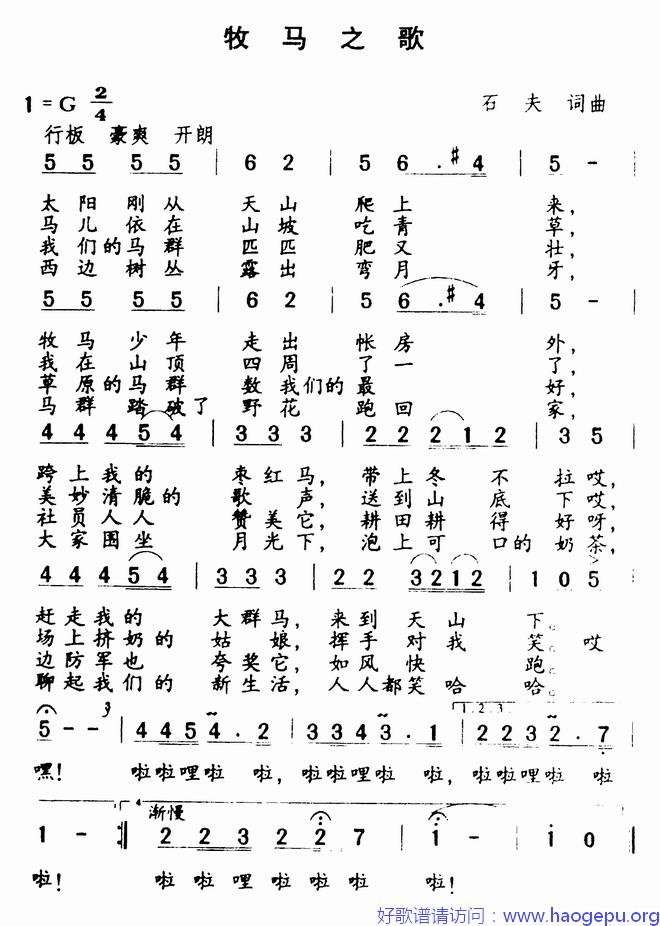 牧马之歌
1=G 2/4
石夫 词曲
行板 豪爽 开朗
5 5 5 5 | 6 2 | 5 6 . #4 | 5 - |
太阳刚从 天山 爬上 来,
马儿依在 山坡 吃青 草,
我们的马群 匹匹 肥又 壮,
西边树丛 露出 弯月 牙,
5 5 5 5 | 6 2 | 5 6 . #4 | 5 - |
牧马少年 走出 帐房 外,
我在山顶 四周 了一 了,
草原的马群 数我们的 最 好,
马群踏破了 野花 跑回 家,
4 4 4 5 4 | 3 3 3 | 2 2 2 1 2 | 3 5 |
跨上我的 枣红马, 带上冬不 拉哎,
美妙清脆的 歌声, 送到山底 下哎,
社员人人 赞美它, 耕田耕得 好呀,
大家围坐 月光下, 泡上可口的 奶茶,
4 4 4 5 4 | 3 3 3 | 2 2 3 2 1 2 | 1 0 5 |
赶走我的 大群马, 来到天山 下。
场上挤奶的 姑娘, 挥手对我 笑。哎
边防军也 夸奖它, 如风快 跑。
聊起我们的 新生活, 人人都笑哈 哈。
5 - - | 4 4 5 4 . 2 | 3 3 4 3 . 1 | 2 2 3 2 . 7 |
1.2.3.
嘿! 啦啦哩啦 啦, 啦啦哩啦 啦, 啦啦哩啦 啦
4. 渐慢
1 - :| 2 2 3 2 2 7 | 1 - | 1 0 |
啦! 啦啦哩啦啦啦 啦!
好歌谱请访问:www.haogepu.org